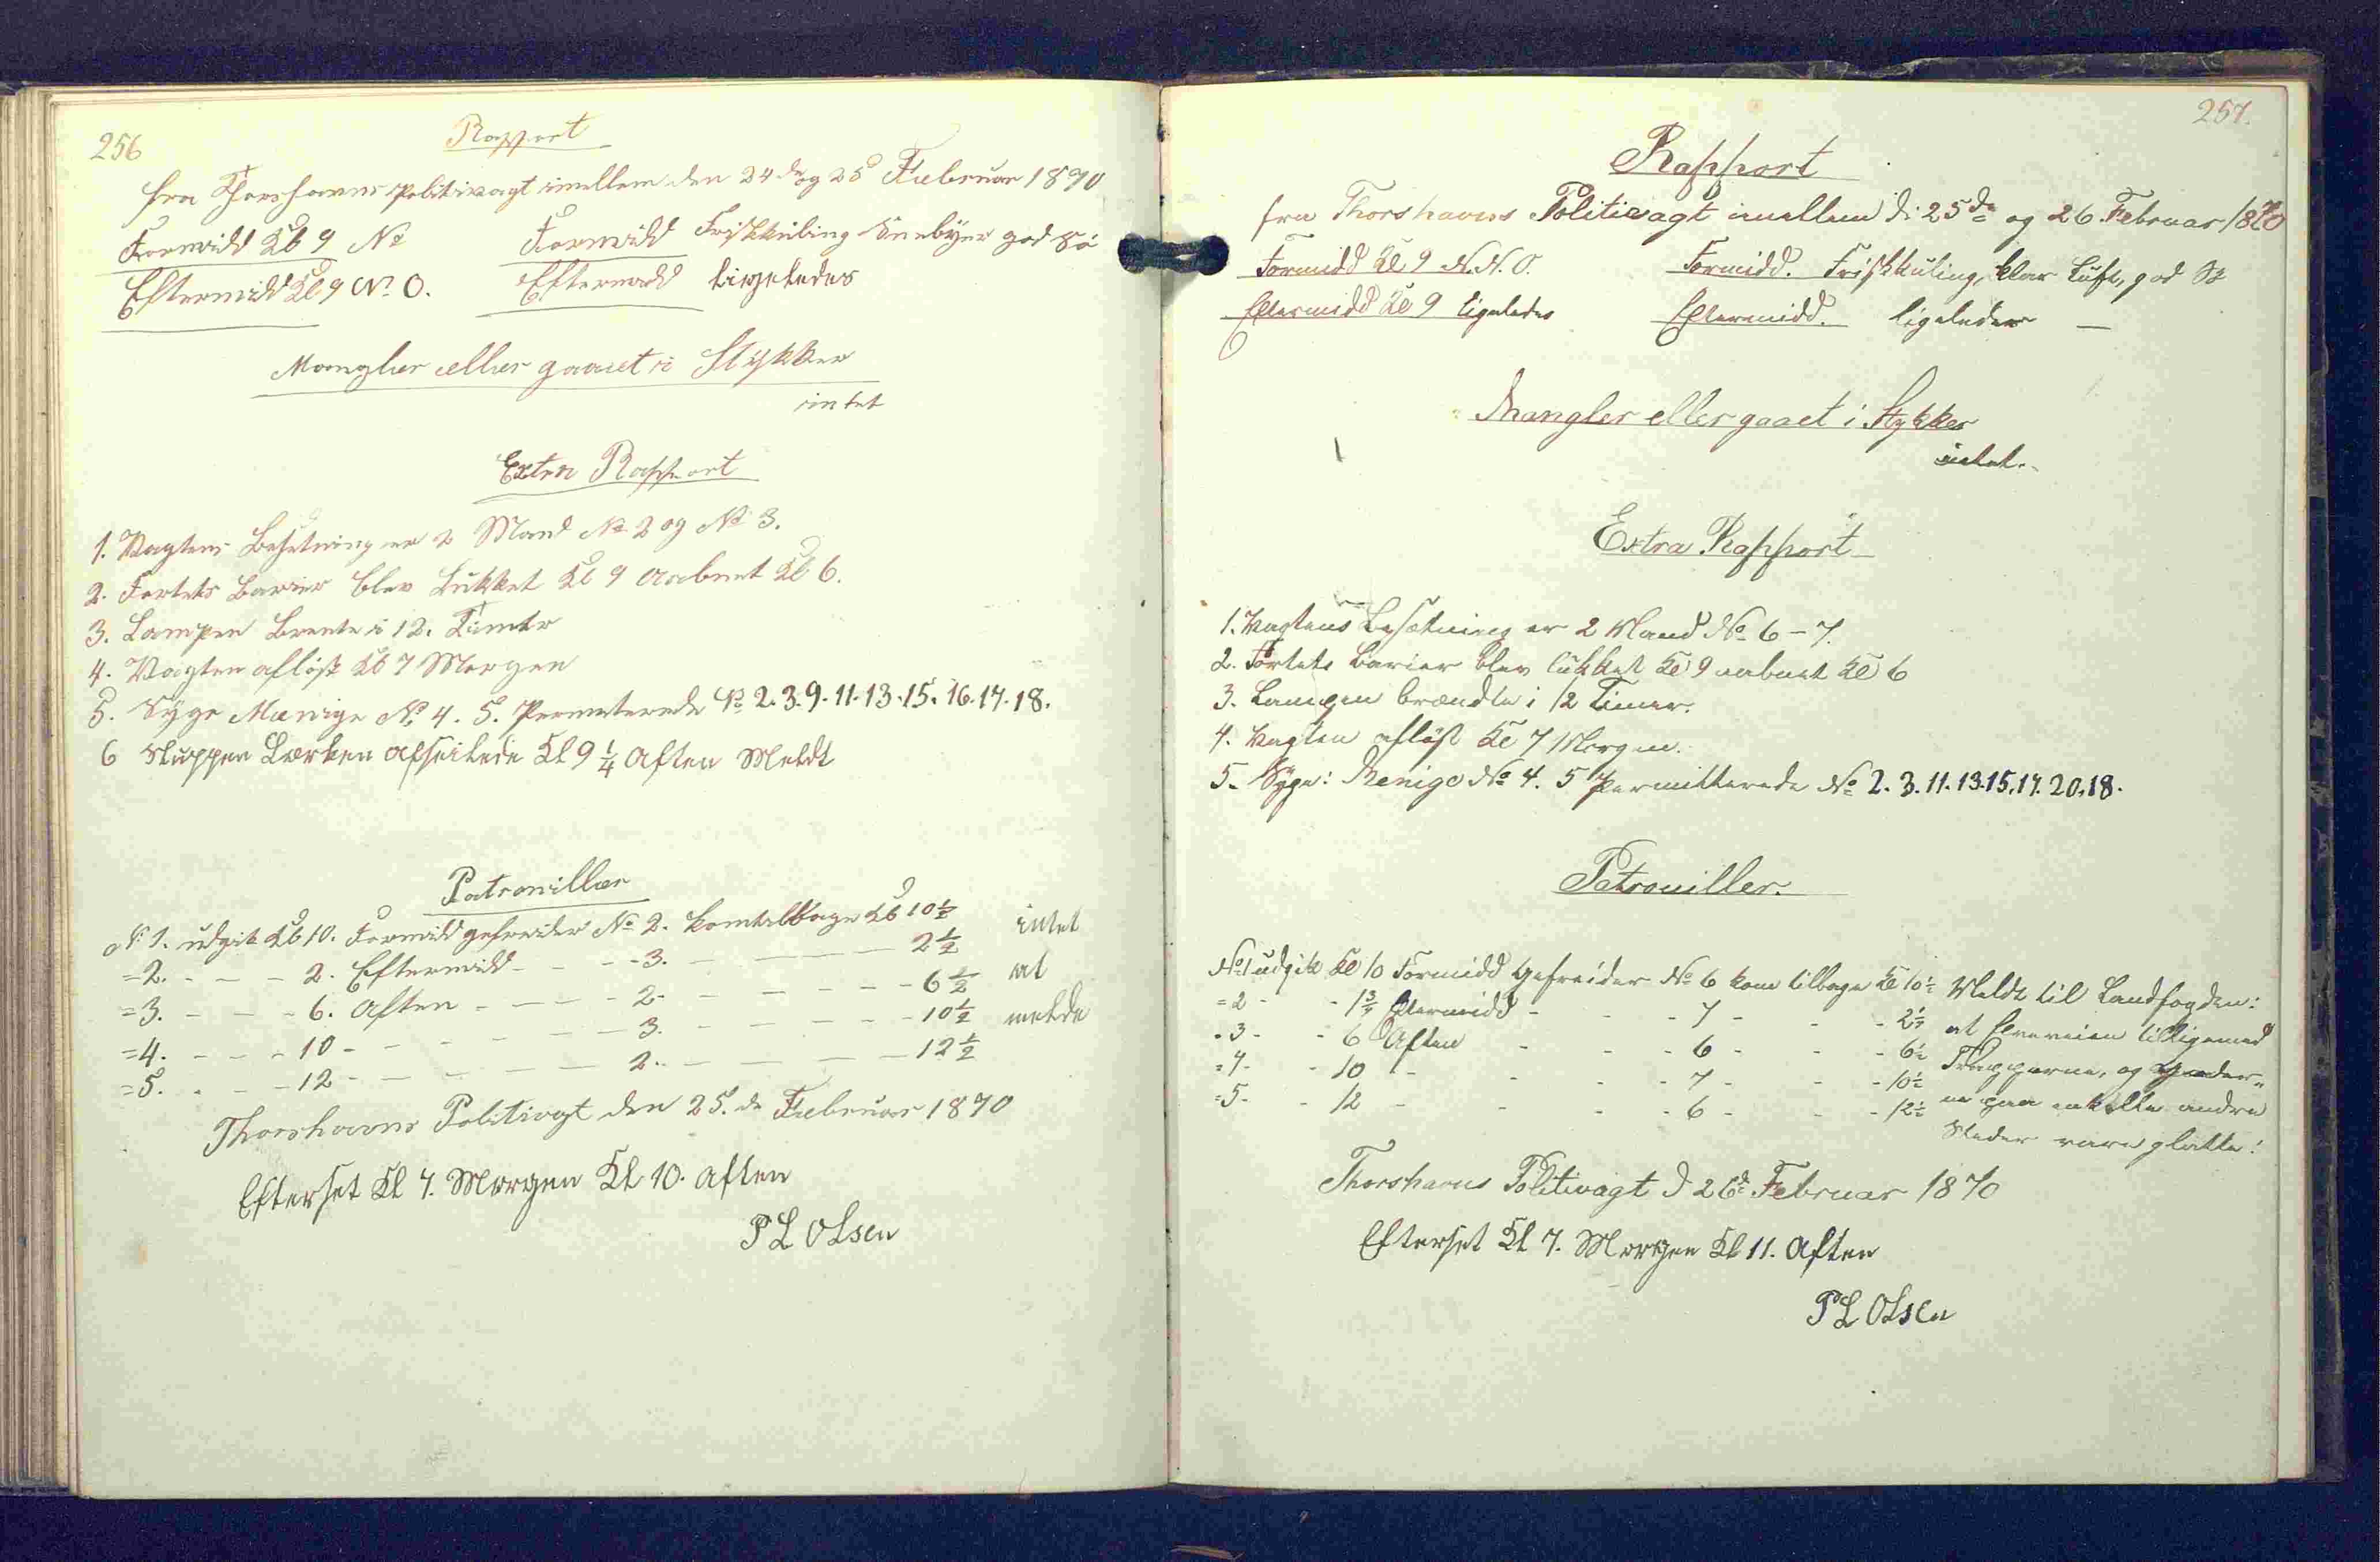 256
Rapport
fra Thorshavns Politivagt imellem den 24de og 25d Februar 1870
Formidd Kl 9 No Formidd Friskkuling Sneebyer god Sö
Eftermidd Kl 9 N. O. Eftermidd ligeledes
Mangler eller gaaet i Stykker
intet
Extra Rapport
1. Vagtens Besetning er 2 Mand No 2 og No 3.
2. Fortets Barier blev Lukket Kl 9 Aabnet Kl 6.
3. Lampen Brente i 12. Timer
4. Vagten aflöst Kl 7 Morgen
5. Syge Menige No 4. 5. Permeterede No 2. 3. 9. 11. 13. 15. 16. 17. 18.
6 Sluppen Lærken afseilede Kl 9 1/4 Aften Meldt
Patrouiller
No 1. udgik Kl 10. Formidd gefreider No 2. komtilbage Kl 10 1/2 intet
=2. - - - 2. Eftermidd - - - 3. - - - 2 1/2 at
=3. - - - 6. Aften - - - - 2 - - - - - 6 1/2 melde
=4. - - - 10 - - - - - - 3. - - - - - 10 1/2
=5. - - - 12 - - - - - - 2. - - - - - 12 1/2
Thorshavns Politivagt den 25. de Februar 1870
Efterset Kl 7. Morgen Kl 10. Aften
P L Olsen
257.
Rapport
fra Thorshavns Politivagt imellem d: 25de og 26. Februar 1870
Formidd Kl 9 N. N. O. Formidd. Friskkuling, klar Luft, god Sö
Eftermidd Kl 9 ligeledes Eftermidd. ligeledes —
Mangler eller gaaet i Stykker
intet.
Extra Rapport
1. Vagtens Besætning er 2 Mand No 6 - 7.
2. Fortets Barier blev lukket Kl 9 aabnet Kl 6
3. Lampen brændte i 12 Timer.
4. Vagten aflöst Kl 7 Morgen.
5. Syge: Menige No 4. 5 Permitterede No 2. 3. 11. 13. 15. 17. 20. 18.
Patrouiller.
No 1 udgik Kl 10 Formidd Gefreider No 6 kom tilbage Kl 10 1/2 Meldt til Landfogden:
=2 - - 1 3/4 Eftermidd - - - 7 - - - 2 1/2 at tilligemed
=3 - - 6 Aften - - - 6 - - - 6 1/2 Trapperne, og Gader-
=4 - - 10 - - - - 7 - - - 10 1/2 ne paa enkelte andre
=5 - - 12 - - - - 6 - - - 12 1/2 Steder vare glatte!
Thorshavns Politivagt d 26d Februar 1870
Efterset Kl 7. Morgen Kl 11. Aften
P L Olsen